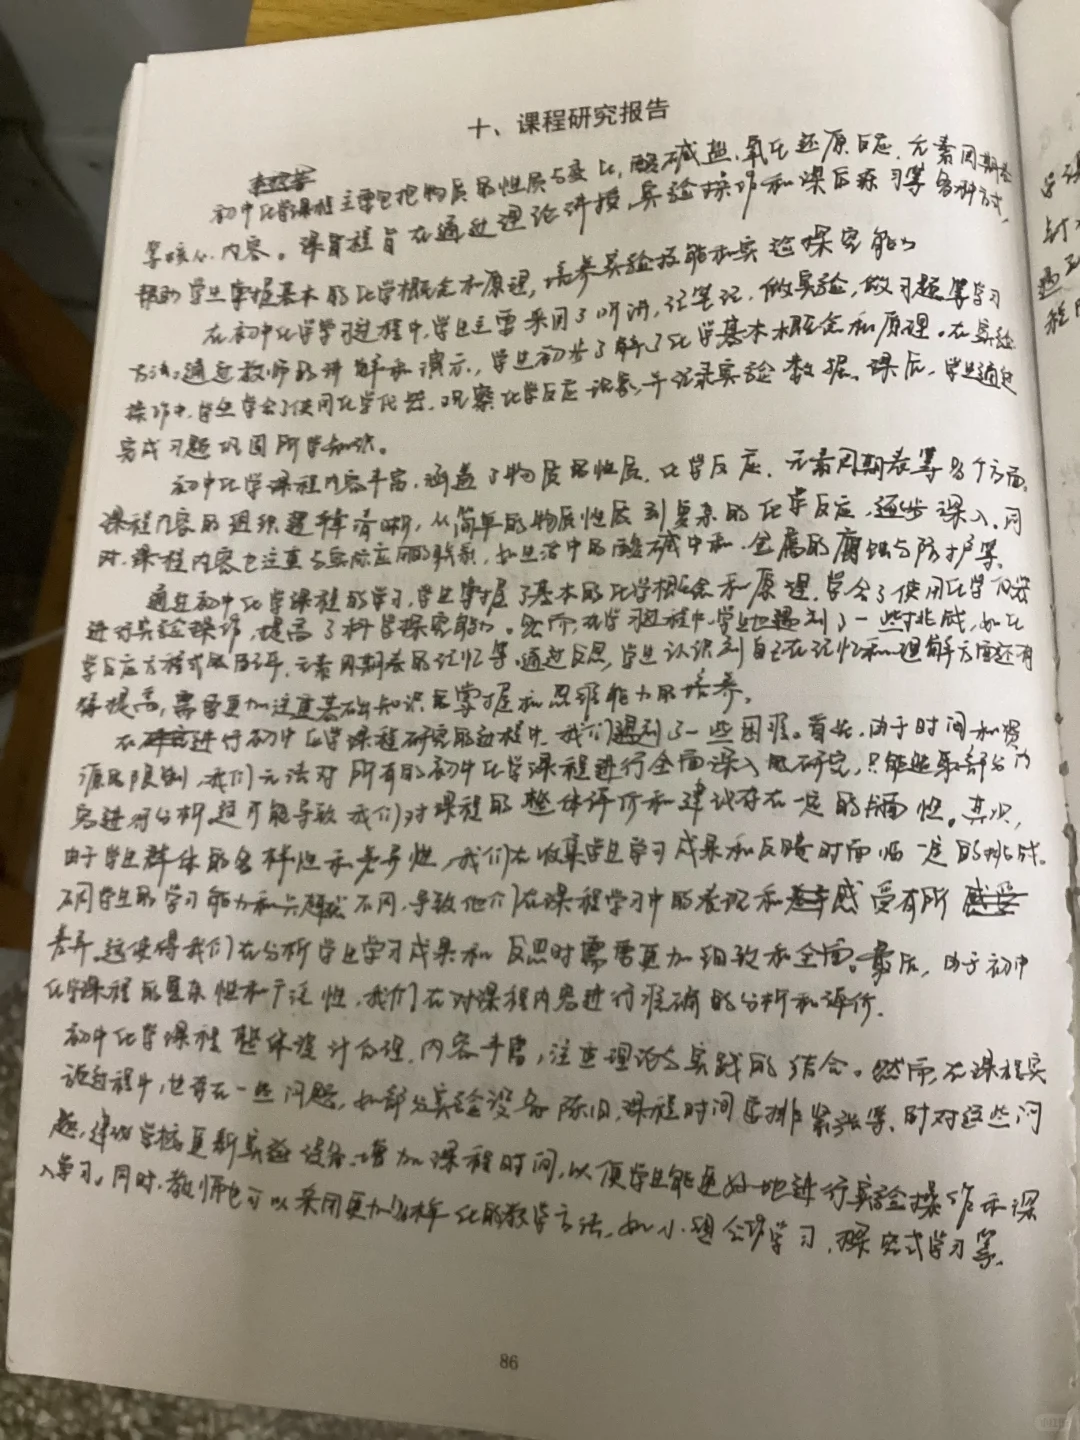 十、课程研究报告
初中化学课程主要包括物质的性质与变化，酸碱盐、氧化还原反应、元素周期表
等核心内容。课程旨在通过理论讲授、实验操作和课后练习等多种方式，
帮助学生掌握基本的化学概念和原理，培养实验技能和实验探究能力
在初中化学学习过程中，学生主要采用了听讲，记笔记，做实验，做习题等学习
方法。通过教师的讲解和演示，学生初步了解了化学基本概念和原理。在实验
操作中，学生学会了使用化学仪器，观察化学反应现象，并记录实验数据。课后，学生通过
完成习题巩固所学知识。
初中化学课程内容丰富，涵盖了物质的性质、化学反应、元素周期表等多个方面。
课程内容的组织清晰，从简单的物质性质到复杂的化学反应，逐步深入。同
时，课程内容也注重与实际应用的联系，如生活中的酸碱中和、金属的腐蚀与防护等。
通过初中化学课程的学习，学生掌握了基本的化学概念和原理，学会了使用化学仪器
进行实验操作，提高了科学探究能力。然而，在学习过程中，学生也遇到了一些挑战，如化
学反应方程式的配平、元素周期表的记忆等。通过反思，学生认识到自己在记忆和理解方面还有
待提高，需要更加注重基础知识的掌握和思维能力的培养。
在进行初中化学课程研究的过程中，我们遇到了一些困难。首先，由于时间和资
源的限制，我们无法对所有的初中化学课程进行全面深入的研究，只能选取部分内
容进行分析，这可能导致我们对课程的整体评价和建议存在一定的片面性。其次，
由于学生群体的多样性和差异性，我们在收集学生学习成果和反馈时面临一定的挑战。
不同学生的学习能力和兴趣不同，导致他们在课程学习中的表现和感受有所
差异。这使得我们在分析学生学习成果和反思时需要更加细致和全面。最后，由于初中
化学课程的复杂性和广泛性，我们在对课程内容进行准确的分析和评价。
初中化学课程整体设计合理，内容丰富，注重理论与实践的结合。然而，在课程实
施过程中，也存在一些问题，如部分实验设备陈旧，课程时间安排紧张等。针对这些问
题，建议学校更新实验设备，增加课程时间，以便学生能更好地进行实验操作和深
入学习。同时，教师也可以采用更加多样化的教学方法，如小组合作学习，探究式学习等。
86